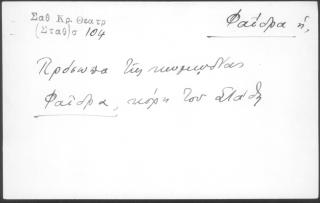 Σαθ Κρ. Θεατρ
(Σταθ)σ 104
Φαίδρα ἡ,
Πρόσωπα τῆς κωμωδίας
Φαίδρα, κόρη τοῦ Στάθη